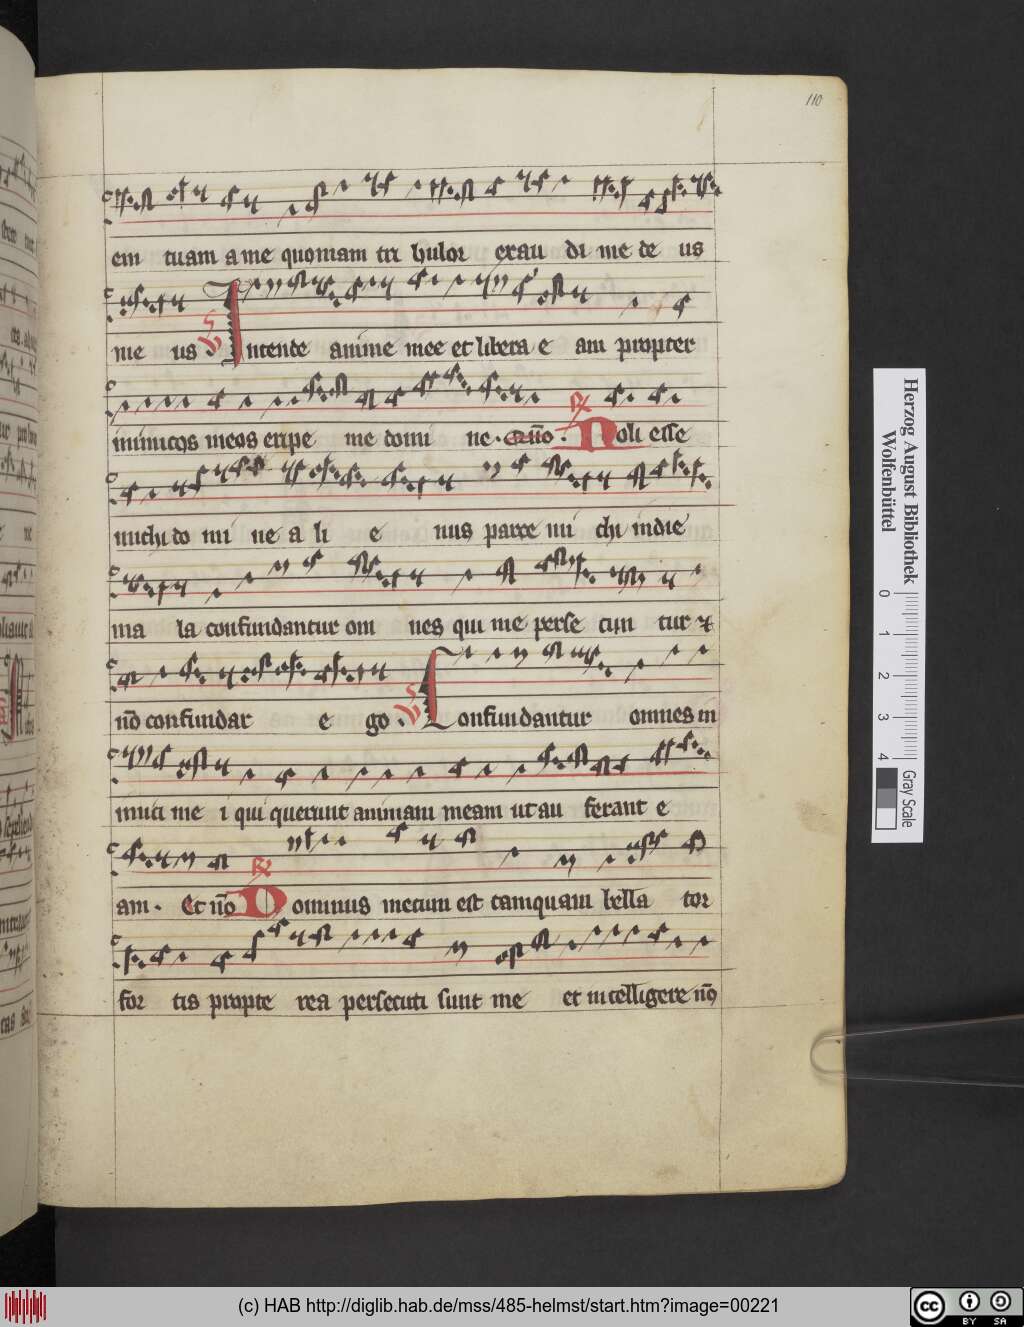 110
em tuam a me quoniam tri bulor exau di me de us
me us Intende anime mee et libera e am propter
inimicos meos eripe me domi ne. Noli esse
michi do mi ne a li e nus parce mi chi in die
ma la confundantur om nes qui me perse cun tur ⁊
nō confundar e go. Confundantur omnes in
imici me i qui querunt animam meam ut au ferant e
am. Et nō Dominus mecum est tamquam bella tor
for tis propte rea persecuti sunt me et intelligere nō
Herzog August Bibliothek
Wolfenbüttel
0 1 2 3 4
Gray Scale
(c) HAB http://diglib.hab.de/mss/485-helmst/start.htm?image=00221
cc BY SA